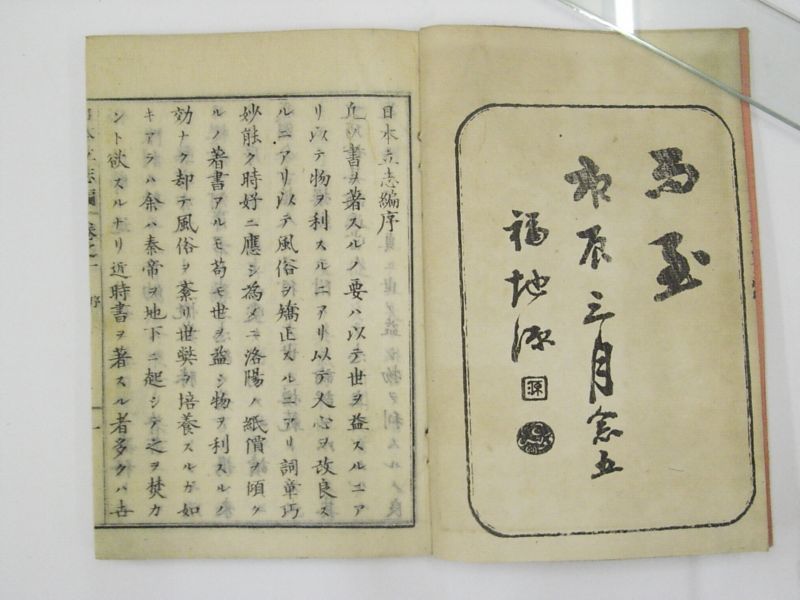 福地源
日本立志編序
凡ソ書ヲ著スルノ要ハ以テ世ヲ益スルニア
リ以テ物ヲ利スルニアリ以テ人心ヲ改良ス
ルニアリ以テ風俗ヲ矯正スルニアリ詞章巧
妙能ク時好ニ應シ為メニ洛陽ノ紙價ヲ傾ク
ルノ著書アルモ苟モ世ヲ益シ物ヲ利スルノ
効ナク却テ風俗ヲ紊リ世弊ヲ培養スルガ如
キアラハ余ハ秦帝ヲ地下ニ起シテ之ヲ焚カ
ント欲スルナリ近時書ヲ著スル者多クハ
序
一